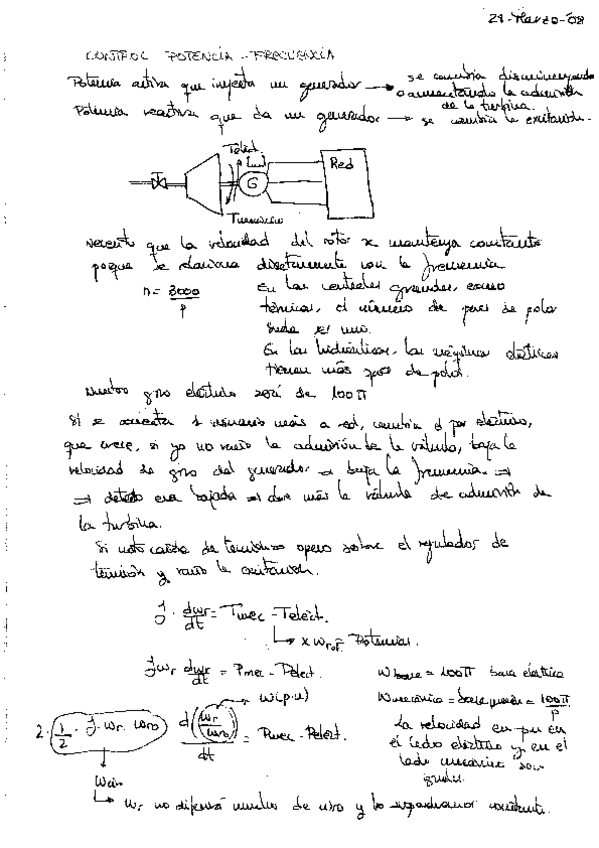 21-Marzo-08
CONTROL POTENCIA - FRECUENCIA
Potencia activa que inyecta un generador → se cambia disminuyendo
o aumentando la admisión
de la turbina.
Potencia reactiva que da un generador → se cambia la excitación.
Telect.
G
Red
Tmecánico
Necesito que la velocidad del rotor se mantenga constante
porque se relaciona directamente con la frecuencia
n = 3000 / p
En las centrales grandes, como
térmicas, el número de pares de polos
suele ser uno.
En las hidráulicas, las máquinas eléctricas
tienen más pares de polos.
Nuestro giro eléctrico será de 100π
Si se conecta 1 usuario más a red, cambia el par eléctrico,
que crece, si yo no varío la admisión de la válvula, baja la
velocidad de giro del generador → baja la frecuencia. ⇒
⇒ detecto esa bajada ⇒ abre más la válvula de admisión de
la turbina.
Si noto caída de tensión opero sobre el regulador de
tensión y varío la excitación.
J · dwr/dt = Tmec - Telect.
→ x wr Potencias.
J wr dwr/dt = Pmec - Pelect.
Wbase = 100π base eléctrica
Wmecánica = = 100π / p
w(p.u)
2 · 1/2 · J · wr · wro d(wr/wro)/dt = Pmec - Pelect.
La velocidad en pu en
el lado eléctrico y en el
lado mecánico son
iguales.
Wcin
→ wr no diferirá mucho de wro y lo supondremos constante.